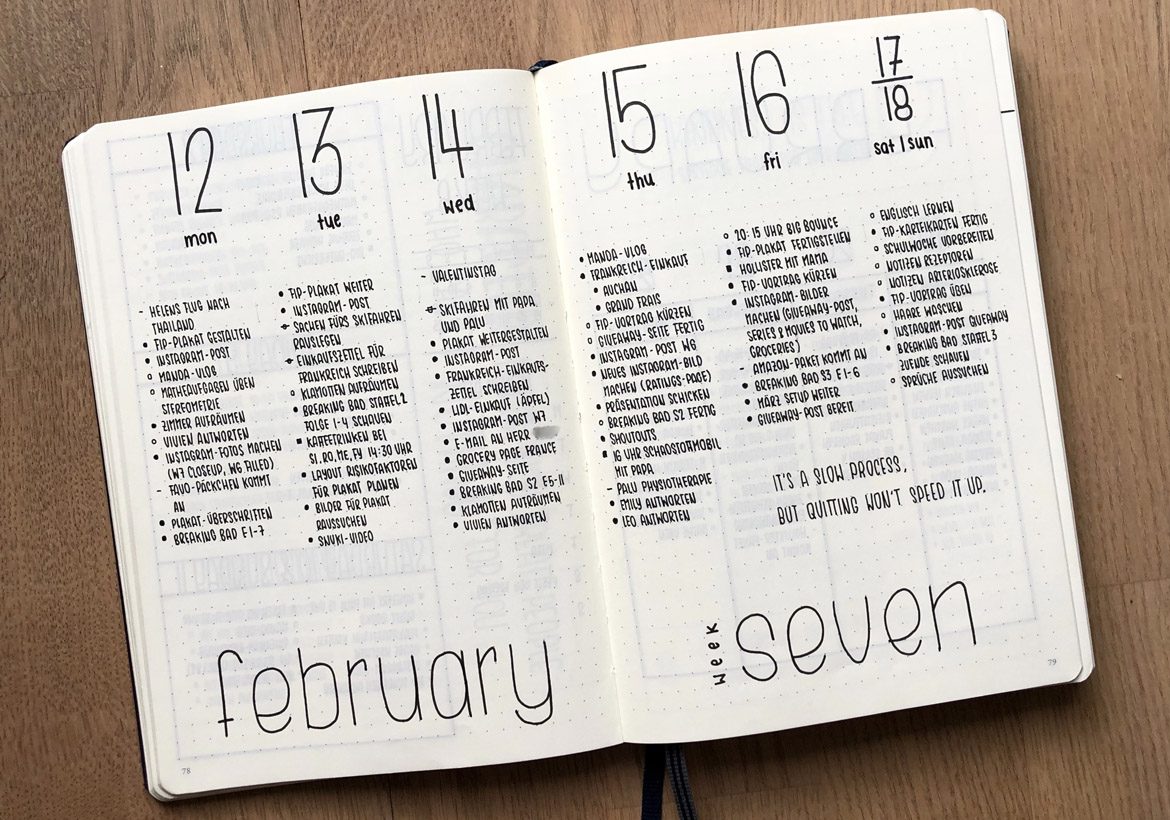 12
mon
- HELENS FLUG NACH
THAILAND
• FIP-PLAKAT GESTALTEN
• INSTAGRAM-POST
○ MANDA-VLOG
○ MATHEAUFGABEN ÜBEN
STEREOMETRIE
• ZIMMER AUFRÄUMEN
○ VIVIEN ANTWORTEN
• INSTAGRAM-FOTOS MACHEN
(W7 CLOSEUP, W6 FILLED)
- FAVO-PÄCKCHEN KOMMT
AN
• PLAKAT-ÜBERSCHRIFTEN
• BREAKING BAD E1-7
13
tue
• FIP-PLAKAT WEITER
• INSTAGRAM-POST
• SACHEN FÜRS SKIFAHREN
RAUSLEGEN
• EINKAUFSZETTEL FÜR
FRANKREICH SCHREIBEN
○ KLAMOTTEN AUFRÄUMEN
• BREAKING BAD STAFFEL 2
FOLGE 1-4 SCHAUEN
▪ KAFFEETRINKEN BEI
SI, RO, ME, FY 14:30 UHR
• LAYOUT RISIKOFAKTOREN
FÜR PLAKAT PLANEN
• BILDER FÜR PLAKAT
RAUSSUCHEN
• SNUKI-VIDEO
14
wed
- VALENTINSTAG
• SKIFAHREN MIT PAPA
UND PALU
• PLAKAT WEITERGESTALTEN
• INSTAGRAM-POST
• FRANKREICH-EINKAUFS-
ZETTEL SCHREIBEN
• LIDL-EINKAUF (ÄPFEL)
• INSTAGRAM-POST W7
• E-MAIL AN HERR
• GROCERY PAGE FRANCE
• GIVEAWAY-SEITE
• BREAKING BAD S2 E5-11
• KLAMOTTEN AUFRÄUMEN
• VIVIEN ANTWORTEN
february
78
15
thu
• MANDA-VLOG
• FRANKREICH-EINKAUF
• AUCHAN
• GRAND FRAIS
○ FIP-VORTRAG KÜRZEN
○ GIVEAWAY-SEITE FERTIG
• INSTAGRAM-POST W6
• NEUES INSTAGRAM-BILD
MACHEN (RATINGS-PAGE)
• PRÄSENTATION SCHICKEN
○ BREAKING BAD S2 FERTIG
• SHOUTOUTS
▪ 16 UHR SCHADSTOFFMOBIL
MIT PAPA
- PALU PHYSIOTHERAPIE
• EMILY ANTWORTEN
• LEO ANTWORTEN
16
fri
○ 20:15 UHR BIG BOUNCE
• FIP-PLAKAT FERTIGSTELLEN
▪ HOLLISTER MIT MAMA
• FIP-VORTRAG KÜRZEN
• INSTAGRAM-BILDER
MACHEN (GIVEAWAY-POST,
SERIES & MOVIES TO WATCH,
GROCERIES)
- AMAZON-PAKET KOMMT AN
• BREAKING BAD S3 E1-6
• MÄRZ SETUP WEITER
• GIVEAWAY-POST BEREIT
17
18
sat / sun
○ ENGLISCH LERNEN
• FIP-KARTEIKARTEN FERTIG
○ SCHULWOCHE VORBEREITEN
○ NOTIZEN REZEPTOREN
○ NOTIZEN ARTERIOSKLEROSE
• FIP-VORTRAG ÜBEN
○ HAARE WASCHEN
• INSTAGRAM-POST GIVEAWAY
• BREAKING BAD STAFFEL 3
ZUENDE SCHAUEN
○ SPRÜCHE AUSSUCHEN
IT'S A SLOW PROCESS,
BUT QUITTING WON'T SPEED IT UP.
week
seven
79